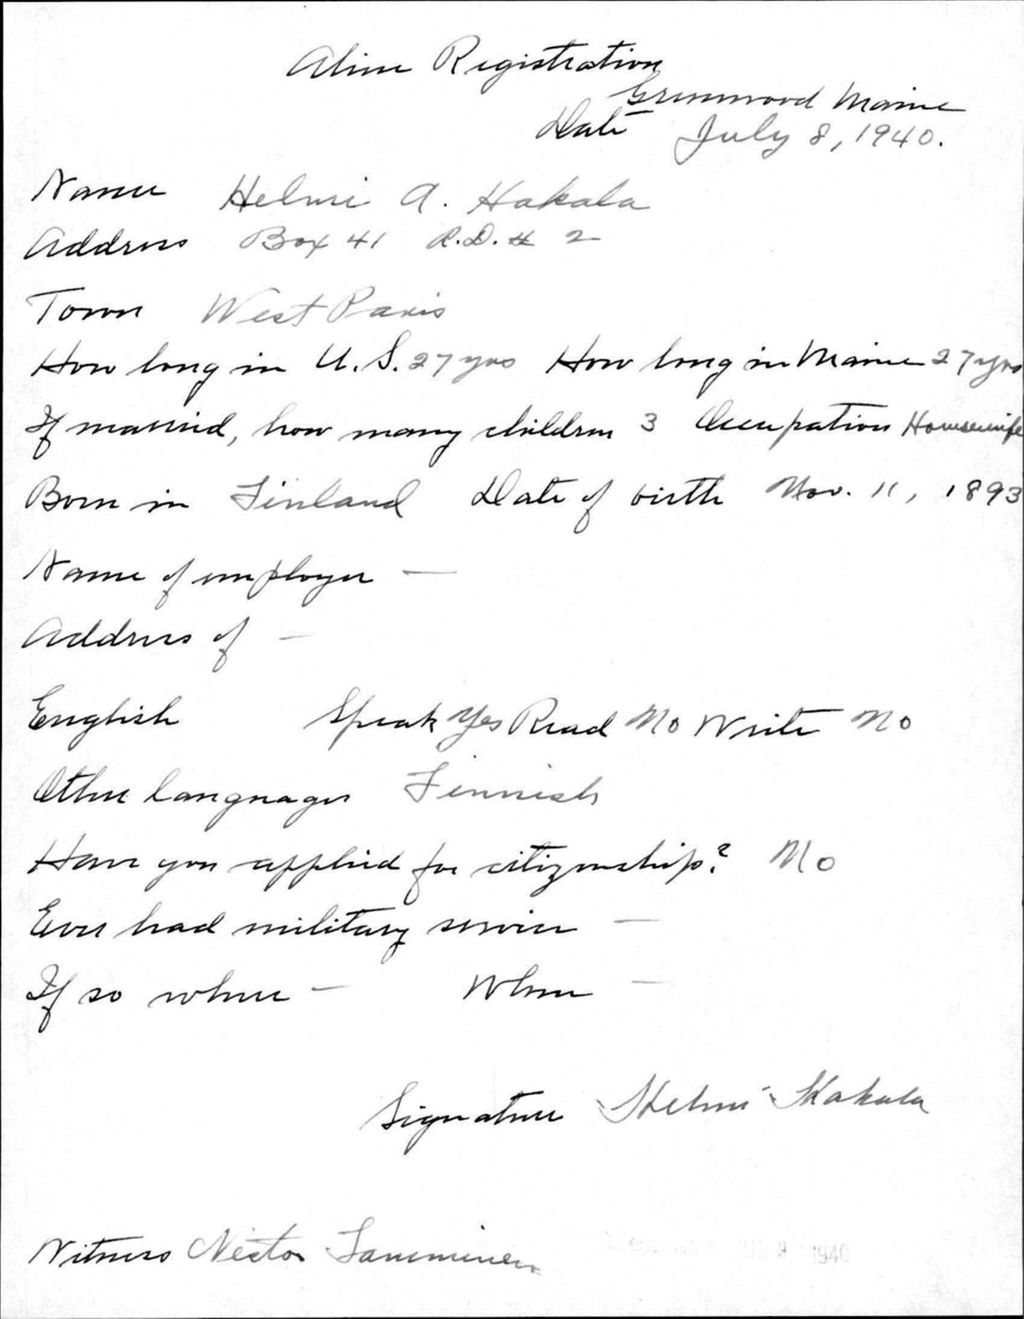 Alien Registration
Greenwood Maine
Date July 8, 1940.
Name Helmi A. Hakala
Address Box 41 R.D. # 2
Town West Paris
How long in U.S. 27 yrs How long in Maine 27 yrs
If married, how many children 3 Occupation Housewife
Born in Finland Date of birth Nov. 11, 1893
Name of employer —
Address of —
English Speak Yes Read No Write No
Other languages Finnish
Have you applied for citizenship? No
Ever had military service —
If so where — When —
Signature Helmi Hakala
Witness Nestor Tamminen
1940